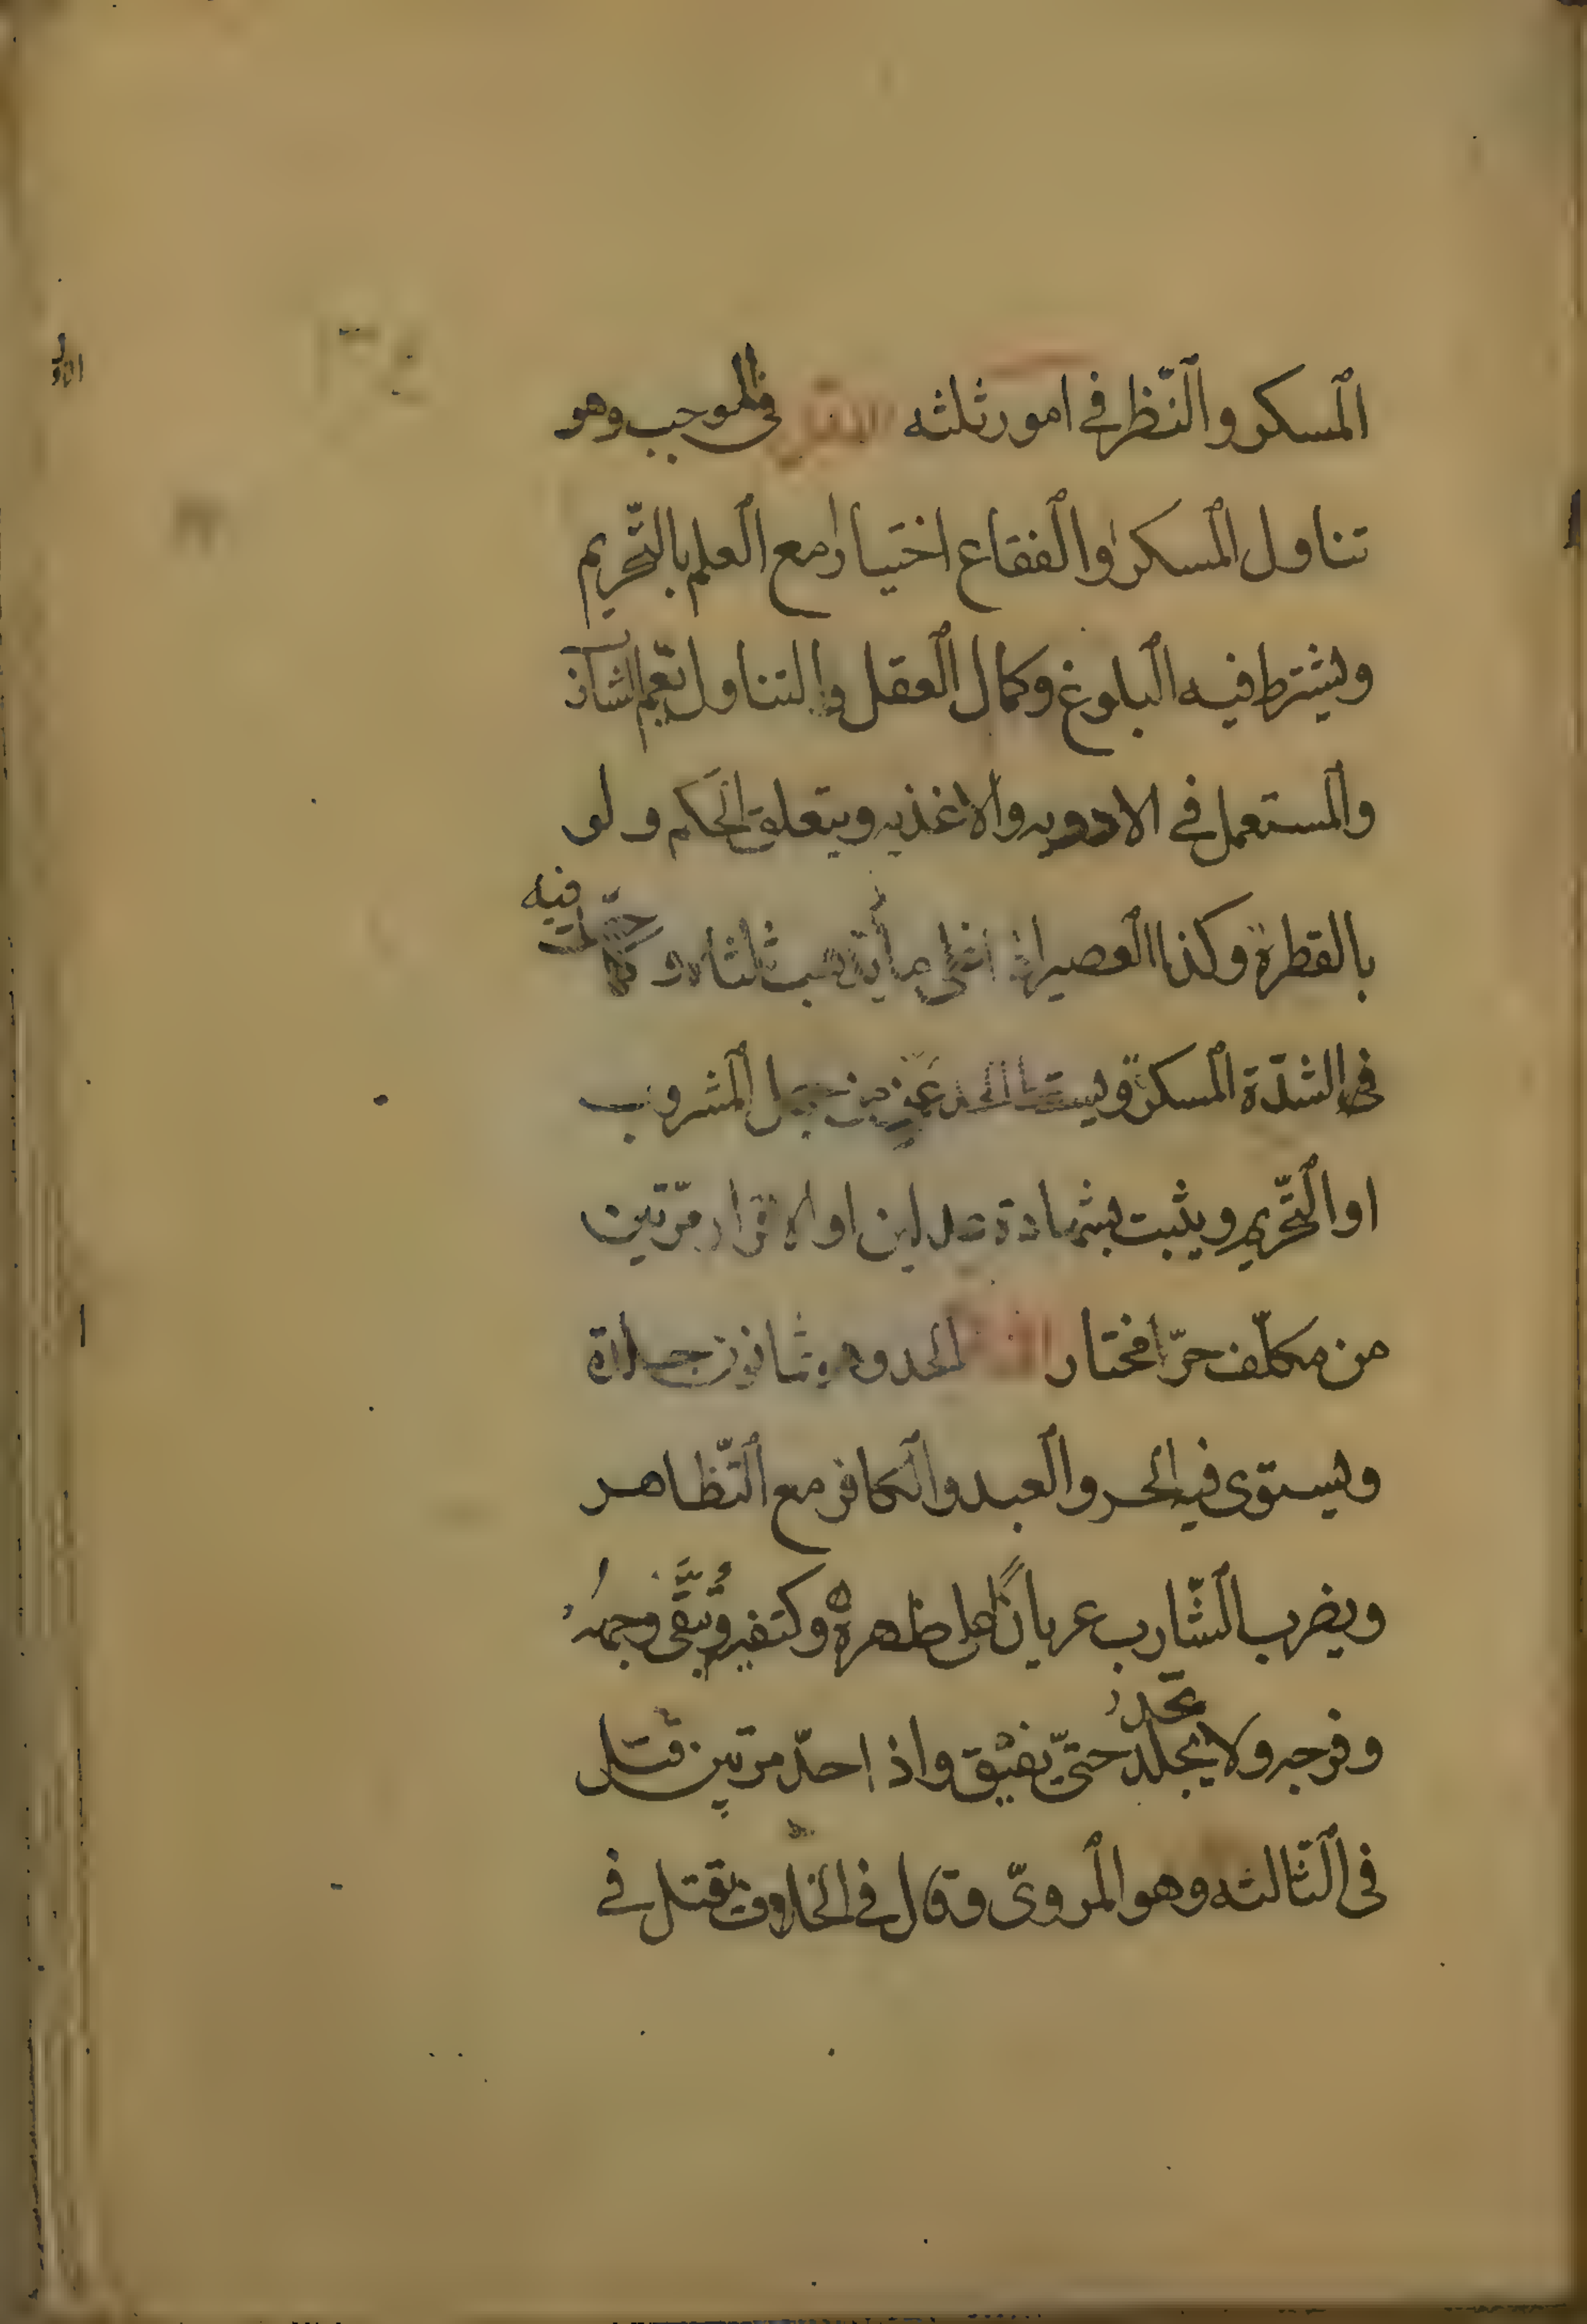 المسكر والنّظر في امور ثلثه في الموجب وهو
تناول المسكر والفقاع اختيارا مع العلم بالتّحريم
ويشترط فيه البلوغ وكمال العقل والتناول يعم الشارب
والمستعمل في الادويه والاغذيه ويتعلق الحكم ولو
بالقطرة وكذا العصير اذا غلى ما لم يذهب ثلثاه وكلما حصلت فيه
فى الشدّة المسكرة ويسقط الحد عمن جهل المشروب
او التّحريم ويثبت بشهادة عدلين او الاقرار مرّتين
من مكلّف حرّ مختار الحد وهو ثمانون جلدة
ويستوى فيه الحر والعبد والكافر مع التّظاهر
ويضرب الشّارب عرياناً على ظهره وكتفيه ويُتّقى وجهه
وفرجه ولا يجلد يحد حتّى يفيق واذا حدّ مرتين قتل
فى الثّالثه وهو المروىّ وقال فى الخلاف يقتل فى